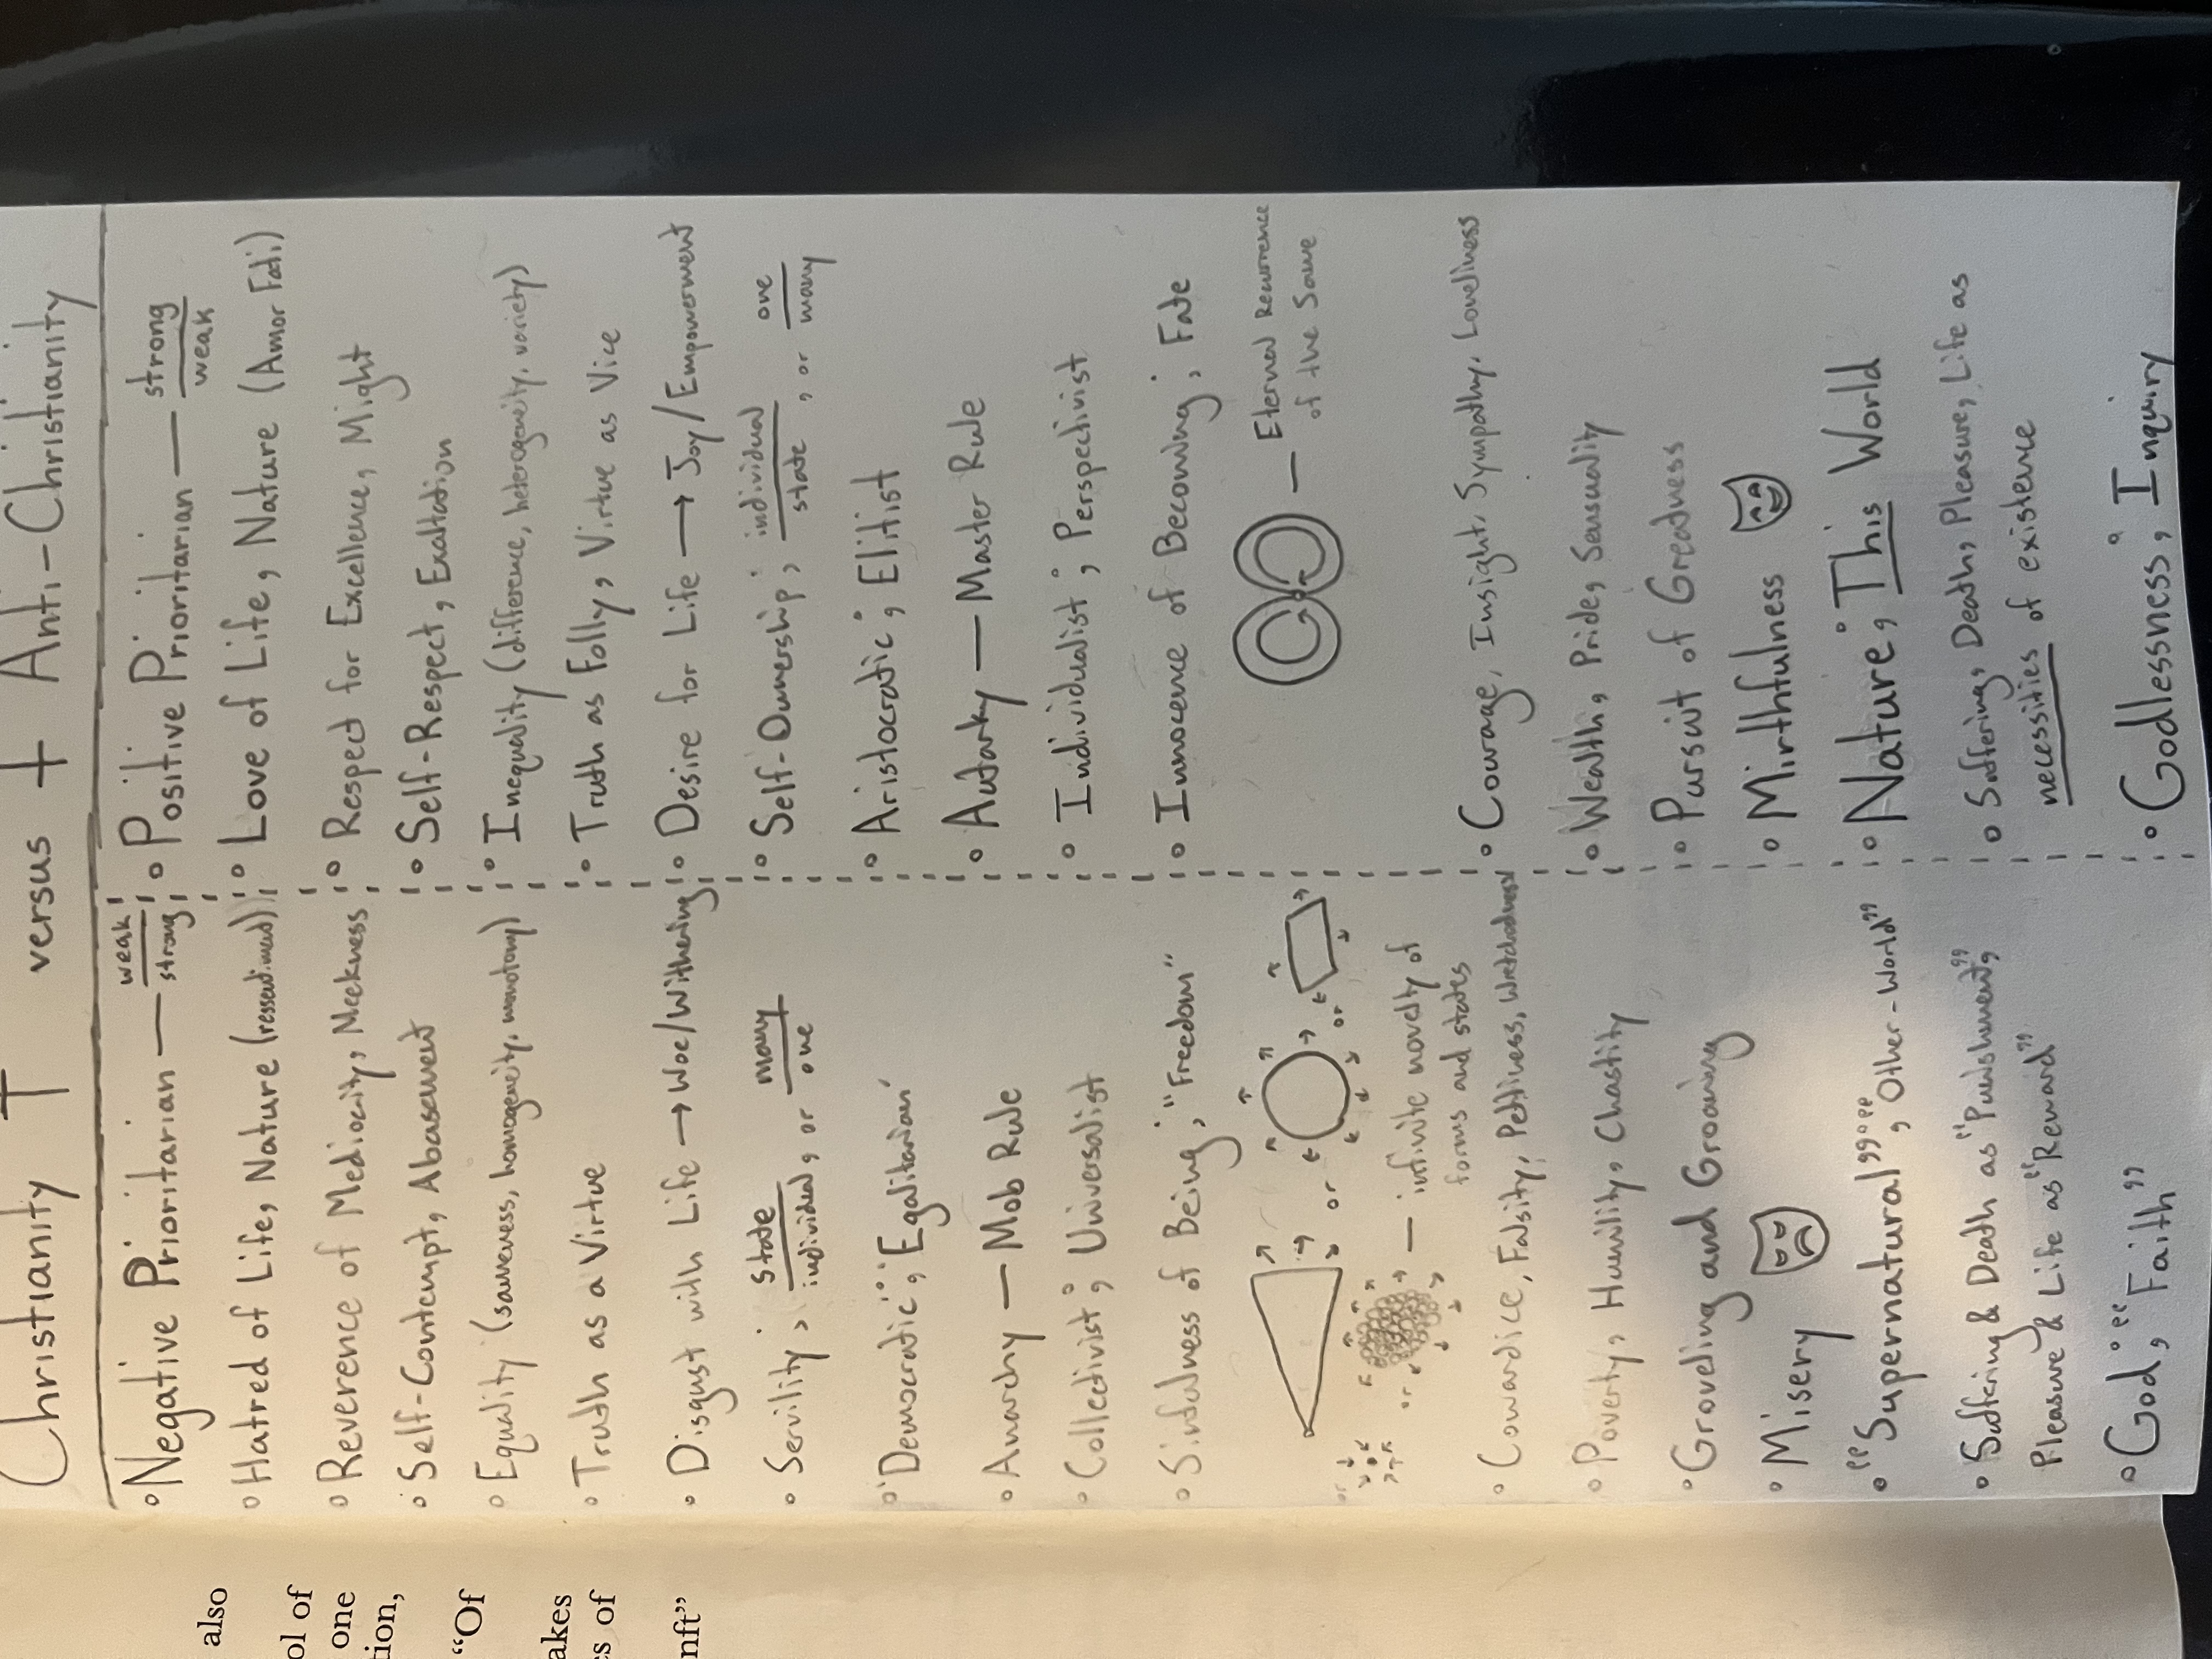 Christianity versus + Anti-Christianity
Negative Prioritarian — weak
strong
Hatred of Life, Nature (ressentiment)
Reverence of Mediocrity, Meekness
Self-Contempt, Abasement
Equality (sameness, homogeneity, monotony)
Truth as a Virtue
Disgust with Life → Woe/Withering
Servility; state
individual, or many
one
"Democratic"; Egalitarian
Anarchy — Mob Rule
Collectivist; Universalist
Sinfulness of Being; "Freedom"
or or
or or — infinite novelty of
forms and states
Cowardice, Falsity, Pettiness, Wretchedness
Poverty, Humility, Chastity
Groveling and Groaning
Misery
"Supernatural"; "Other-World"
Suffering & Death as "Punishment,"
Pleasure & Life as "Reward"
God; "Faith"
Positive Prioritarian — strong
weak
Love of Life, Nature (Amor Fati)
Respect for Excellence, Might
Self-Respect, Exaltation
Inequality (difference, heterogeneity, variety)
Truth as Folly, Virtue as Vice
Desire for Life → Joy/Empowerment
Self-Ownership; individual
state, or one
many
Aristocratic; Elitist
Autarky — Master Rule
Individualist; Perspectivist
Innocence of Becoming; Fate
— Eternal Recurrence
of the Same
Courage, Insight, Sympathy, Loneliness
Wealth, Pride, Sensuality
Pursuit of Greatness
Mirthfulness
Nature; This World
Suffering, Death, Pleasure, Life as
necessities of existence
Godlessness; Inquiry
also
ol of
one
tion,
"Of
akes
s of
nft"